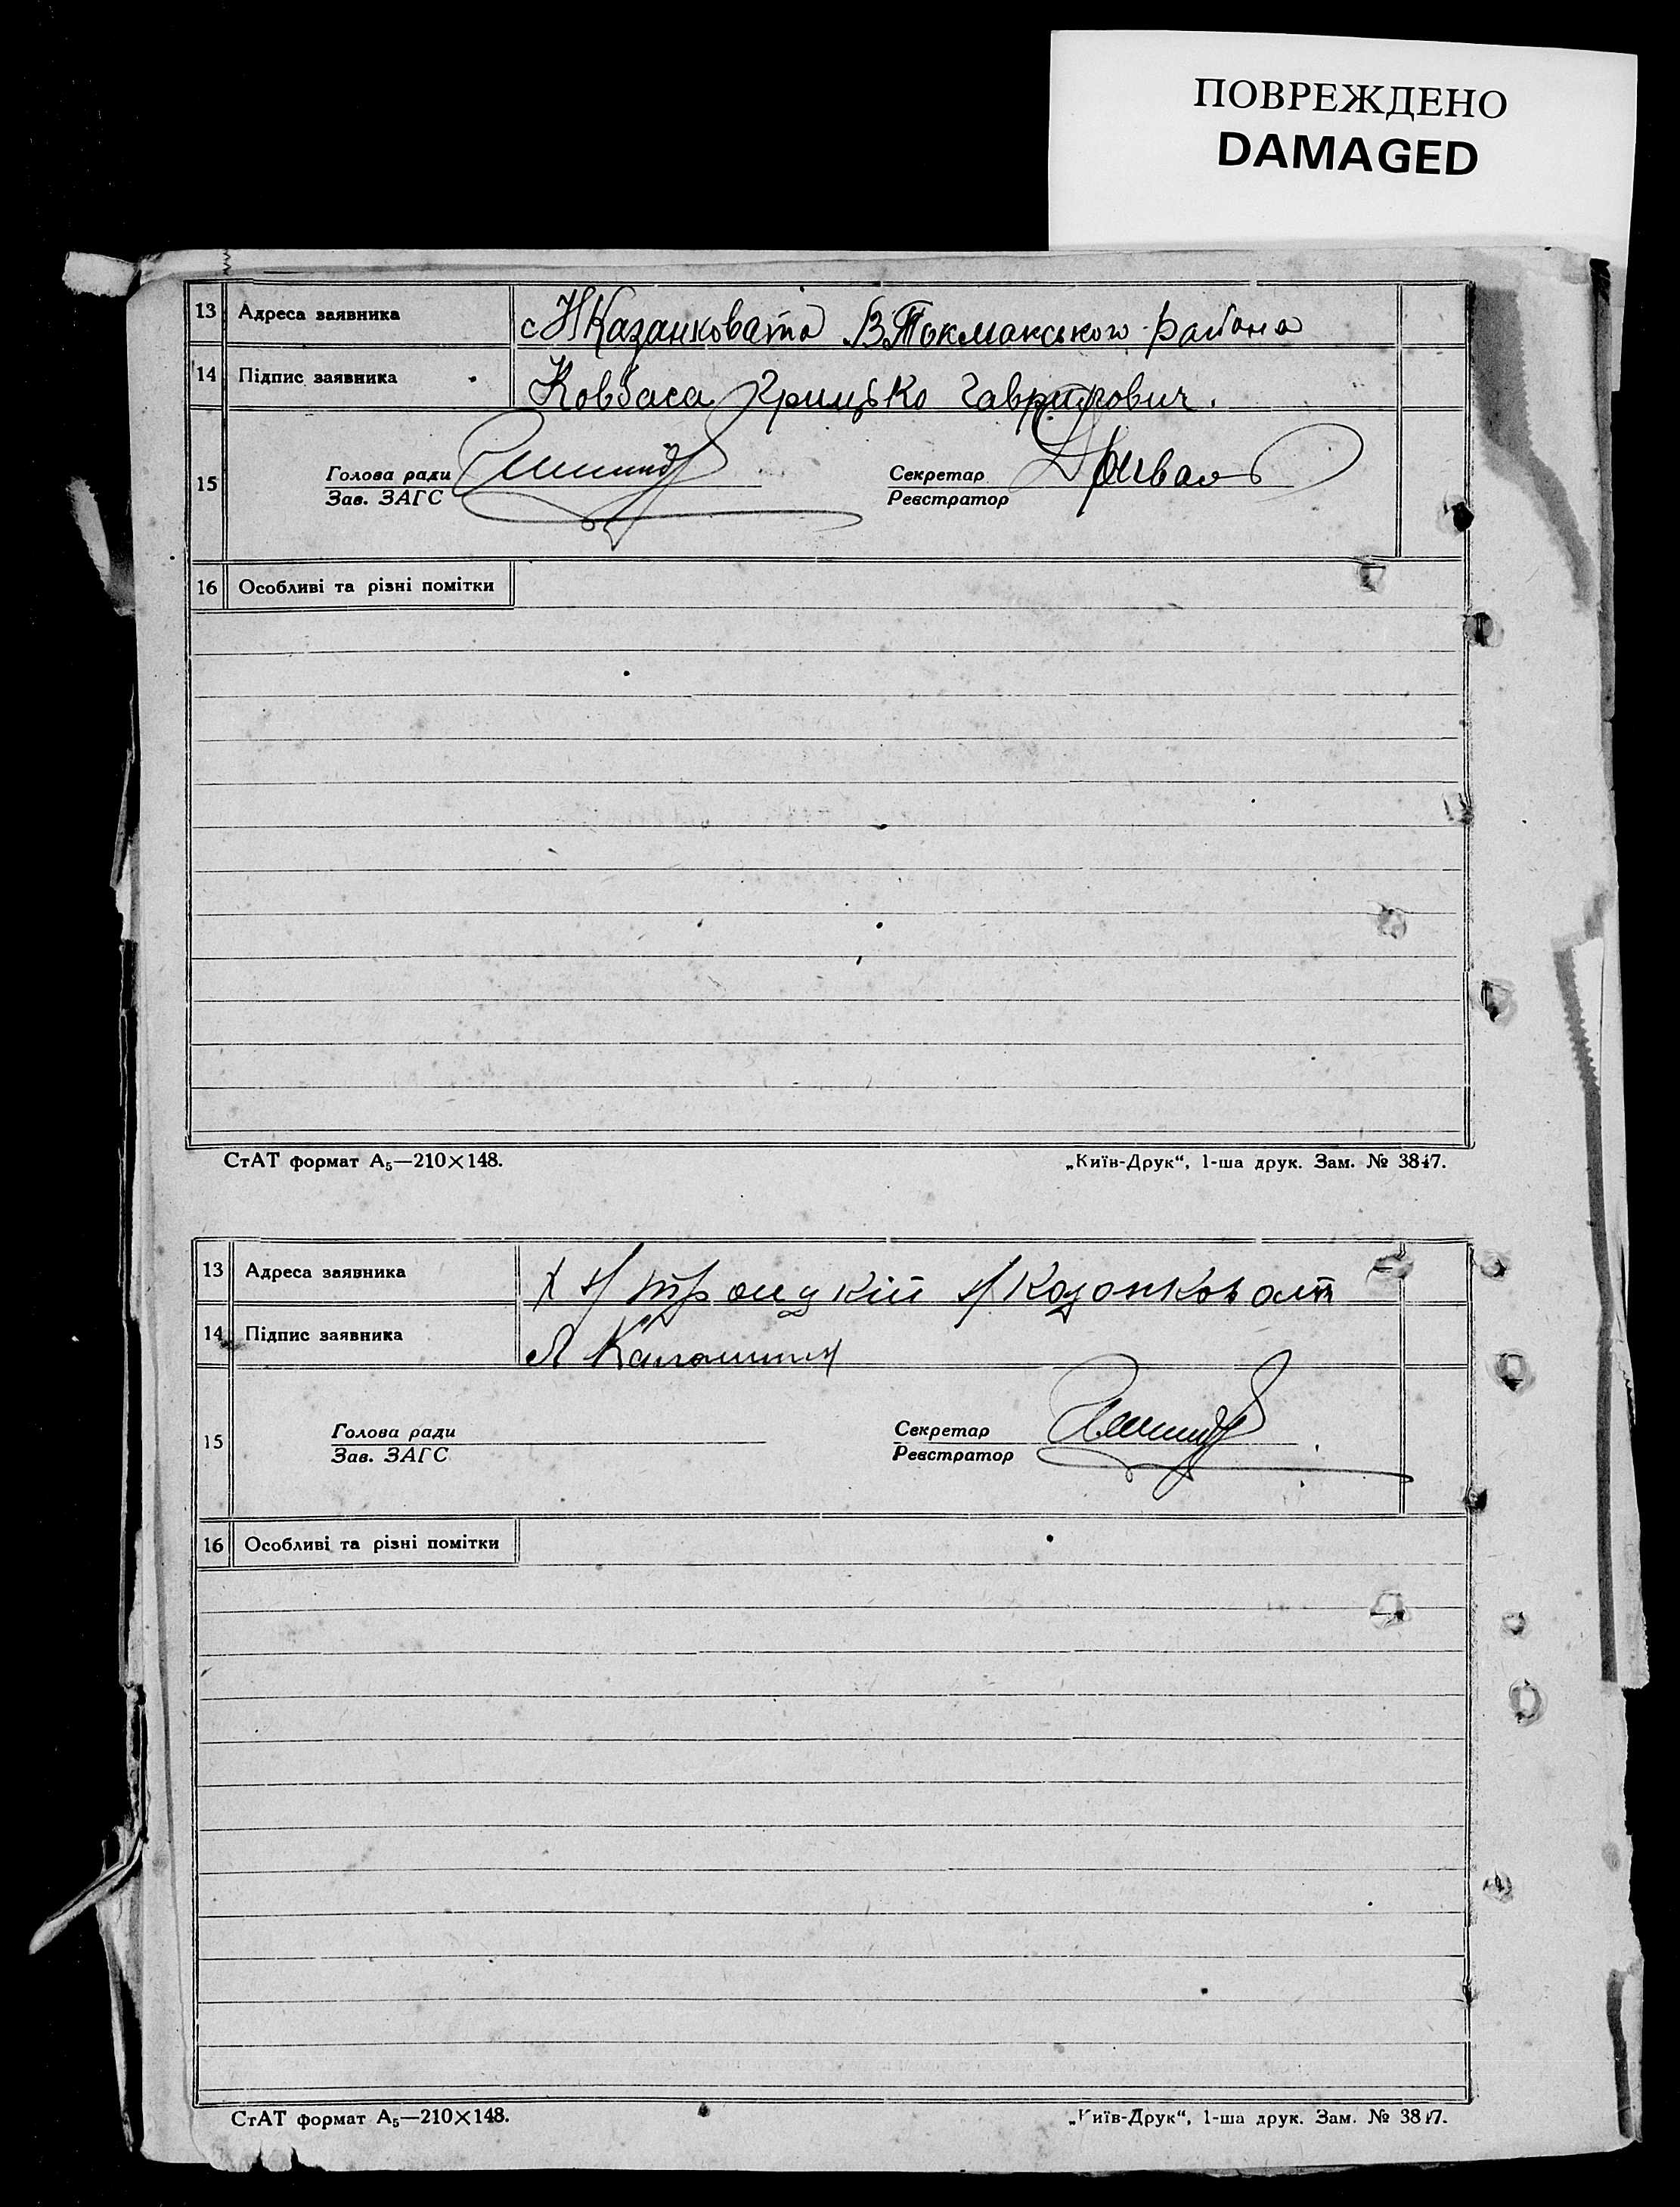 ПОВРЕЖДЕНО
DAMAGED
13 Адреса заявника с Н Казанковата В Токмакського района
14 Підпис заявника Ковбаса Грицько Гаврилович.
15 Голова ради Секретар
Зав. ЗАГС Реєстратор
16 Особливі та різні помітки
СтАТ формат А₅—210×148. „Київ-Друк“, 1-ша друк. Зам. № 3847.
13 Адреса заявника х Н Троицкій Н Козонковат
14 Підпис заявника
15 Голова ради Секретар
Зав. ЗАГС Реєстратор
16 Особливі та різні помітки
СтАТ формат А₅—210×148. „Київ-Друк“, 1-ша друк. Зам. № 3847.